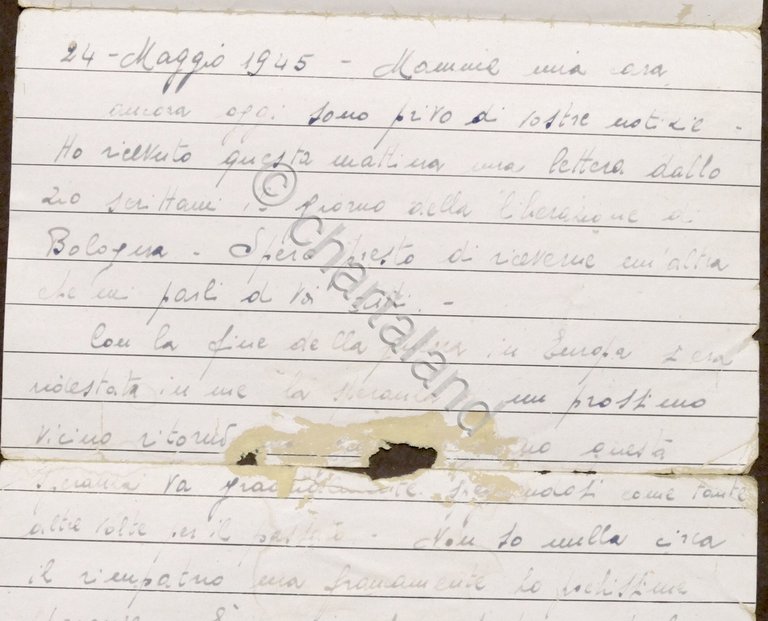 24 - Maggio 1945 - Mamma mia cara,
ancora oggi sono privo di vostre notizie -
Ho ricevuto questa mattina una lettera dallo
zio scrittami il giorno della liberazione di
Bologna - Spero presto di riceverne un'altra
che mi parli di voi tutti. -
Con la fine della guerra in Europa s'era
ridestata in me la speranza un prossimo
vicino ritorno questa
speranza va gradatamente spegnendosi come tante
altre volte per il passato - Non so nulla circa
il rimpatrio, ma francamente ho pochissime
© chartaland